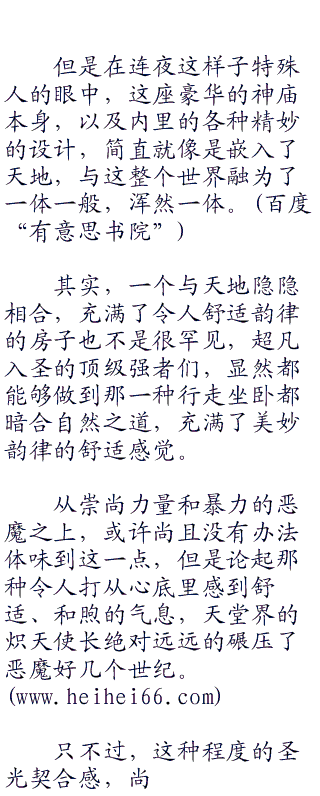 但是在连夜这样子特殊
人的眼中，这座豪华的神庙
本身，以及内里的各种精妙
的设计，简直就像是嵌入了
天地，与这整个世界融为了
一体一般，浑然一体。(百度
“有意思书院”)
其实，一个与天地隐隐
相合，充满了令人舒适韵律
的房子也不是很罕见，超凡
入圣的顶级强者们，显然都
能够做到那一种行走坐卧都
暗合自然之道，充满了美妙
韵律的舒适感觉。
从崇尚力量和暴力的恶
魔之上，或许尚且没有办法
体味到这一点，但是论起那
种令人打从心底里感到舒
适、和煦的气息，天堂界的
炽天使长绝对远远的碾压了
恶魔好几个世纪。
(www.heihei66.com)
只不过，这种程度的圣
光契合感，尚